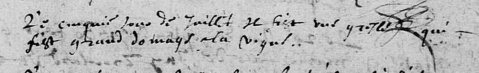 Le cinquie Jour de Juillet Il fist une gresle qui
fist grand domage a la vigne..